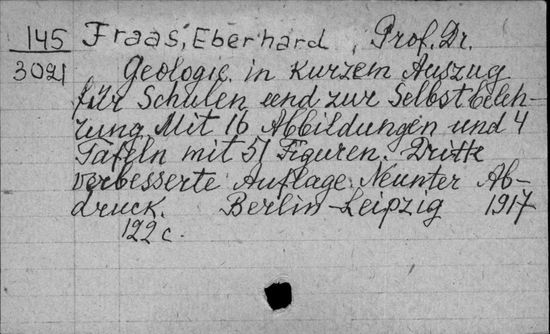 145 Fraas, Eberhard, Prof. Dr.
3021 Geologie in kurzem Auszug
für Schulen und zur Selbstbeleh-
rung. Mit 16 Abbildungen und 4
Tafeln mit 51 Figuren. Dritte
verbesserte Auflage. Neunter Ab-
druck. Berlin-Leipzig 1917
122 c.